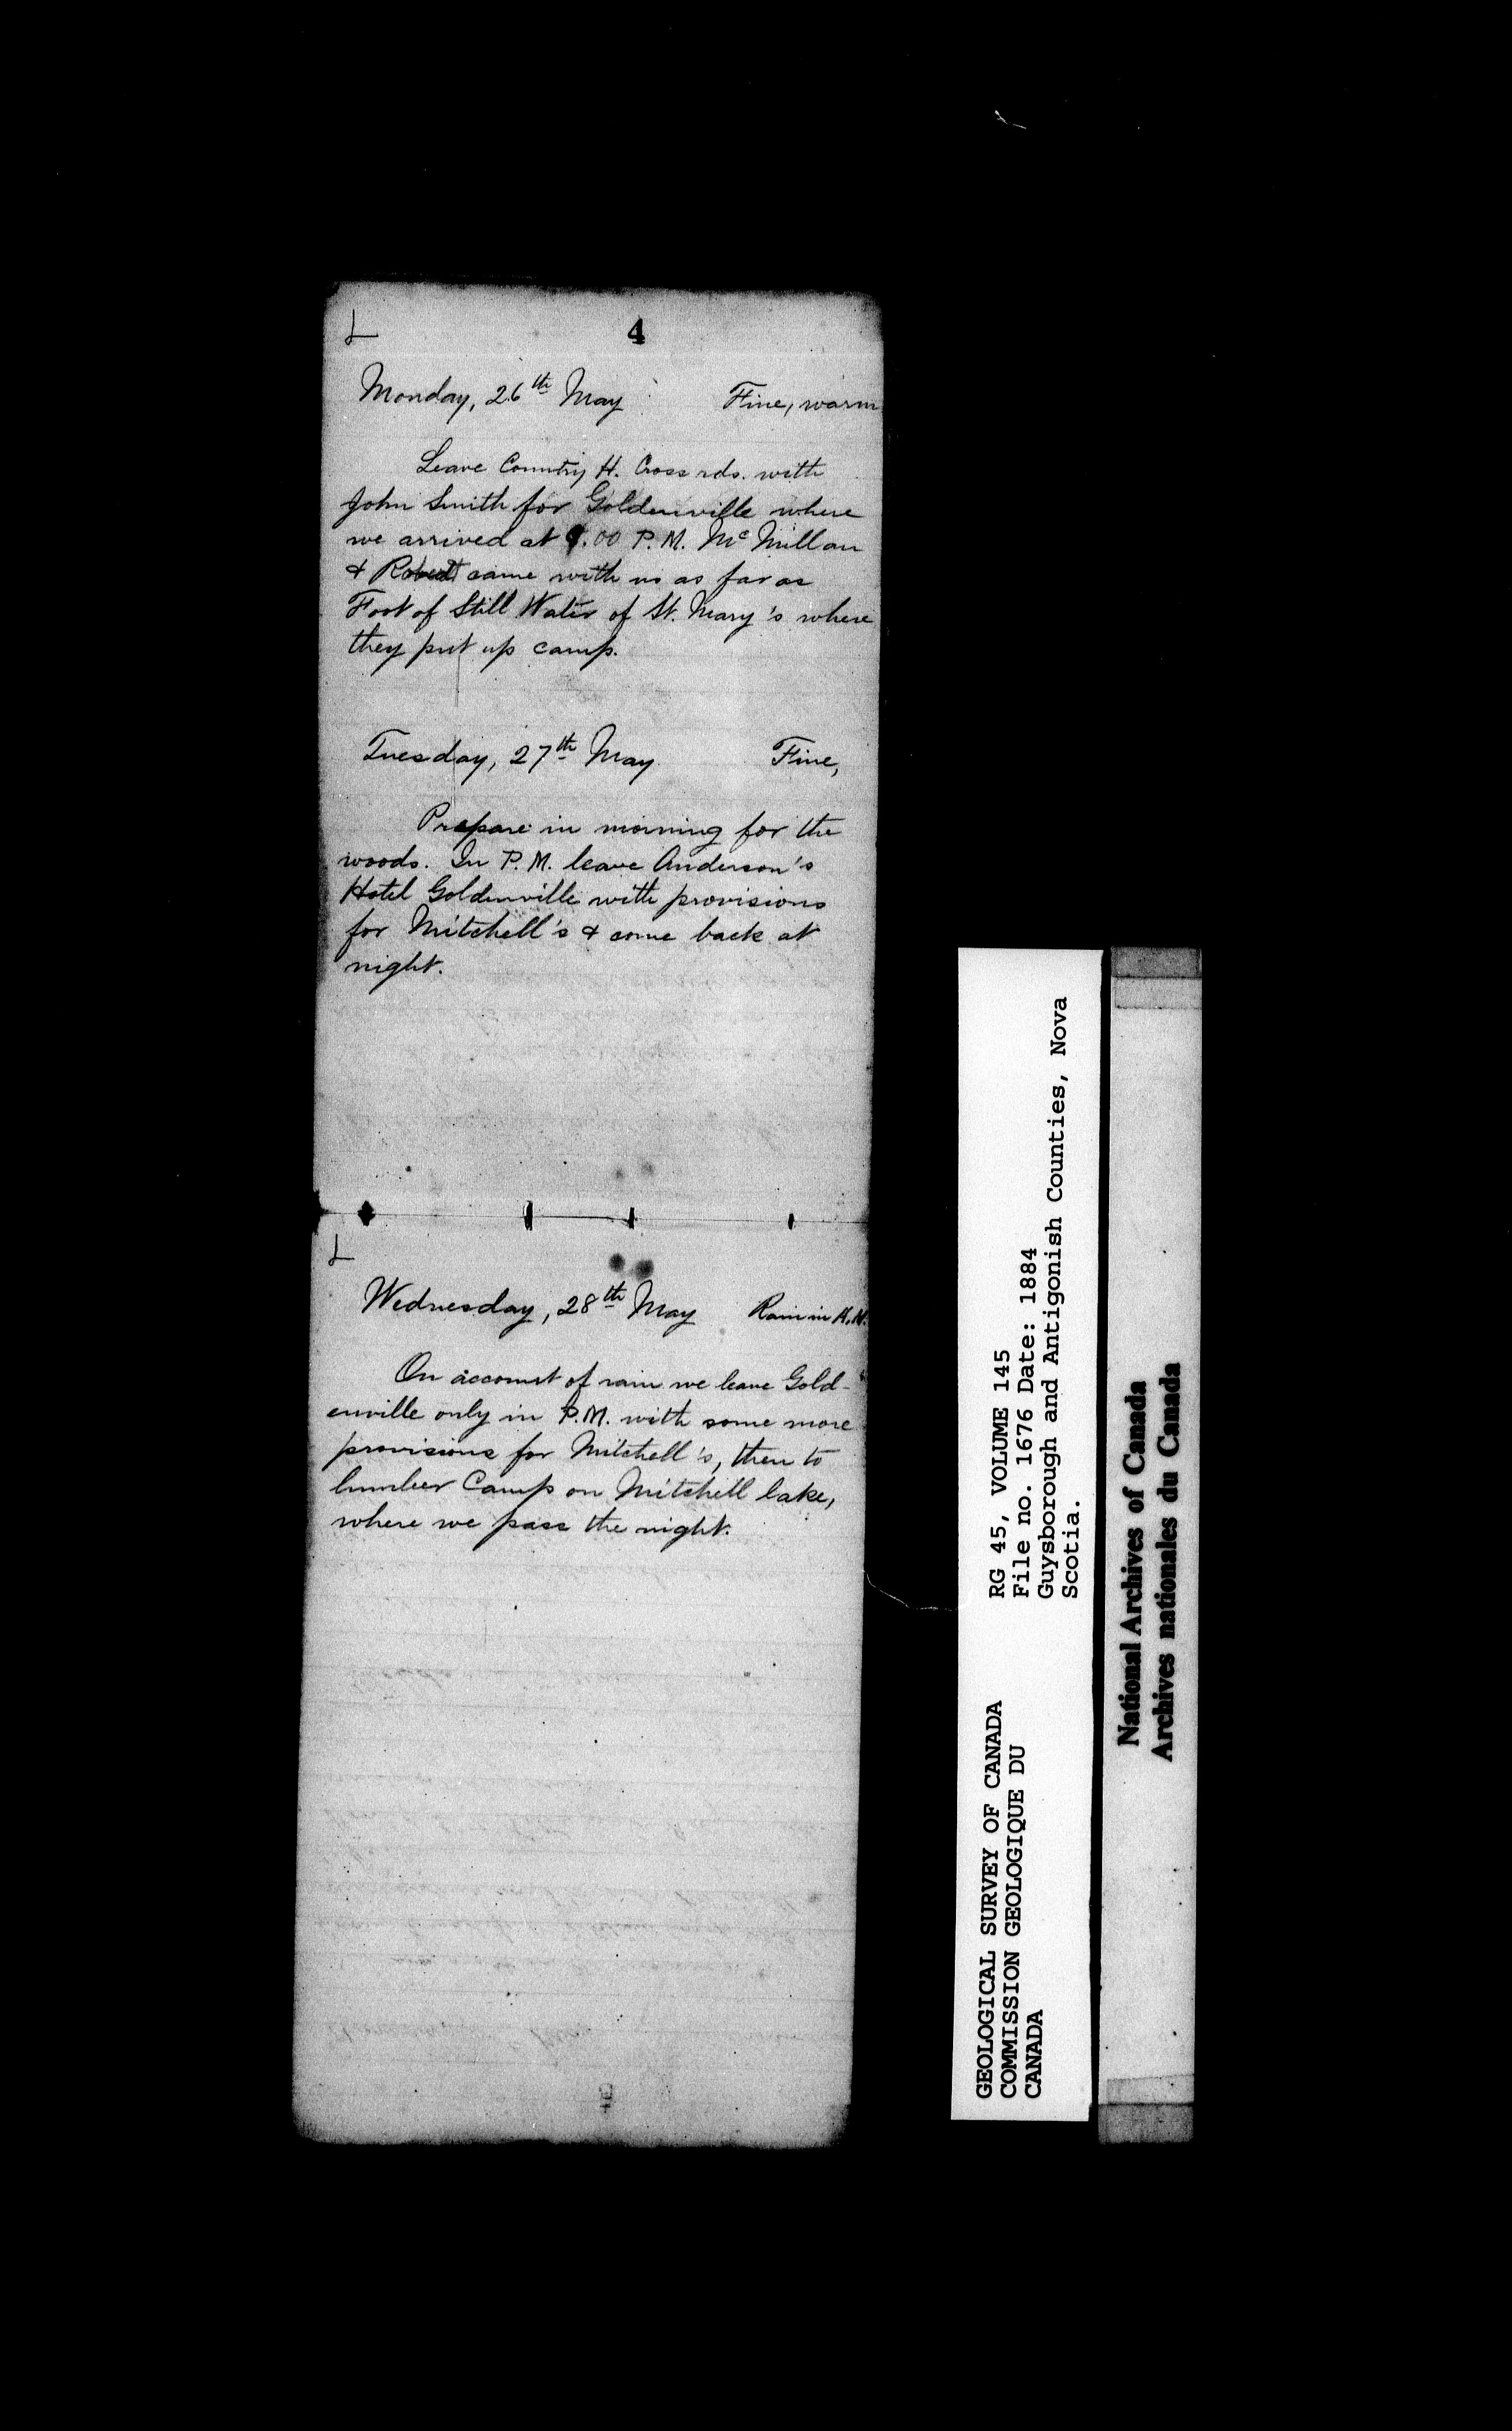 4
Monday, 26th May Fine, warm
Leave Country H. Cross rds. with
John Smith for Goldenville where
we arrived at .00 P.M. McMillan
& Robert came with us as far as
Foot of Still Water of St. Mary's where
they put up camp.
Tuesday, 27th May Fine,
Prepare in morning for the
woods. In P.M. leave Anderson's
Hotel Goldenville with provisions
for Mitchell's & come back at
night.
Wednesday, 28th May Rain in A.M.
On account of rain we leave Gold-
enville only in P.M. with some more
provisions for Mitchell's, then to
lumber Camp on Mitchell lake,
where we pass the night.
GEOLOGICAL SURVEY OF CANADA
COMMISSION GEOLOGIQUE DU
CANADA
RG 45, VOLUME 145
File no. 1676 Date: 1884
Guysborough and Antigonish Counties, Nova
Scotia.
National Archives of Canada
Archives nationales du Canada